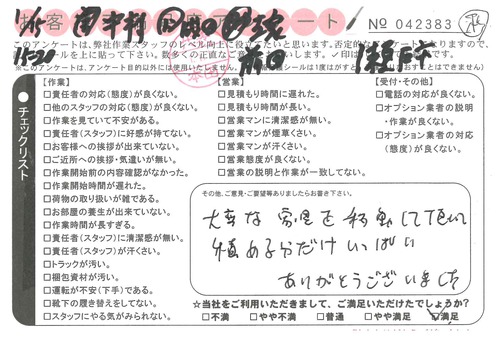 お客 アンケート № 042383
1/15
15:30
このアンケートは、弊社作業スタッフのレベル向上に役立てたいと思います。否定的な
ールを上に貼って下さい。数多くの正直なご意見、
【作業】
□責任者の対応(態度)が良くない。
□他のスタッフの対応(態度)が良くない。
□作業を見ていて不安がある。
□責任者(スタッフ)に好感が持てない。
□お客様への挨拶が出来ていない。
□ご近所への挨拶・気遣いが無い。
□作業開始前の内容確認がなかった。
□作業開始時間が遅れた。
□荷物の取り扱いが雑である。
□お部屋の養生が出来ていない。
□作業時間が長すぎる。
□責任者(スタッフ)に清潔感が無い。
□責任者(スタッフ)が汗くさい。
□トラックが汚い。
□梱包資材が汚い。
□運転が不安(下手)である。
□靴下の履き替えをしてない。
□スタッフにやる気がみられない。
【営業】
□見積もり時間に遅れた。
□見積もり時間が長い。
□営業マンに清潔感が無い。
□営業マンが煙草くさい。
□営業マンが汗くさい。
□営業態度が良くない。
□営業の説明と作業が一致してない。
【受付・その他】
□電話の対応が良くない。
□オプション業者の説明
・作業が良くない。
□オプション業者の対応
(態度)が良くない。
その他、ご意見・ご要望等ありましたらお書き下さい。
大事な家具を移動して頂いて
積める分だけいっぱい
ありがとうございました
☆当社をご利用いただきまして、ご満足いただけたでしょうか?
□不満 □やや不満 □普通 □やや満足 ☑満足
●チェックリスト